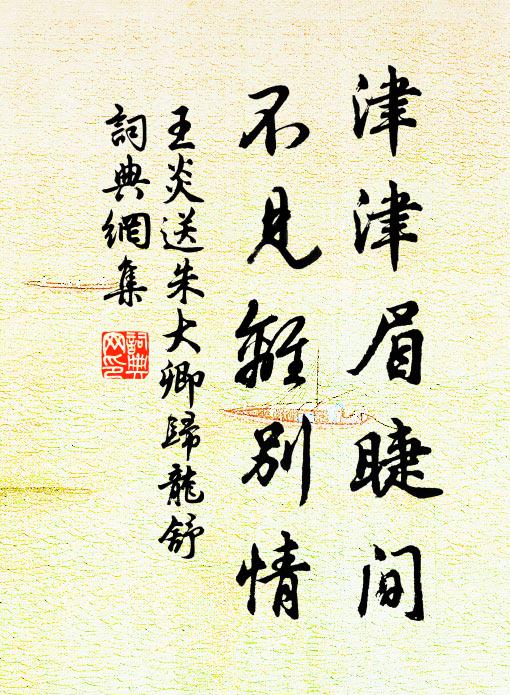 津津眉睫间
不見離别情
王炎送朱大卿歸龍舒
詞典網集
詞典
网印